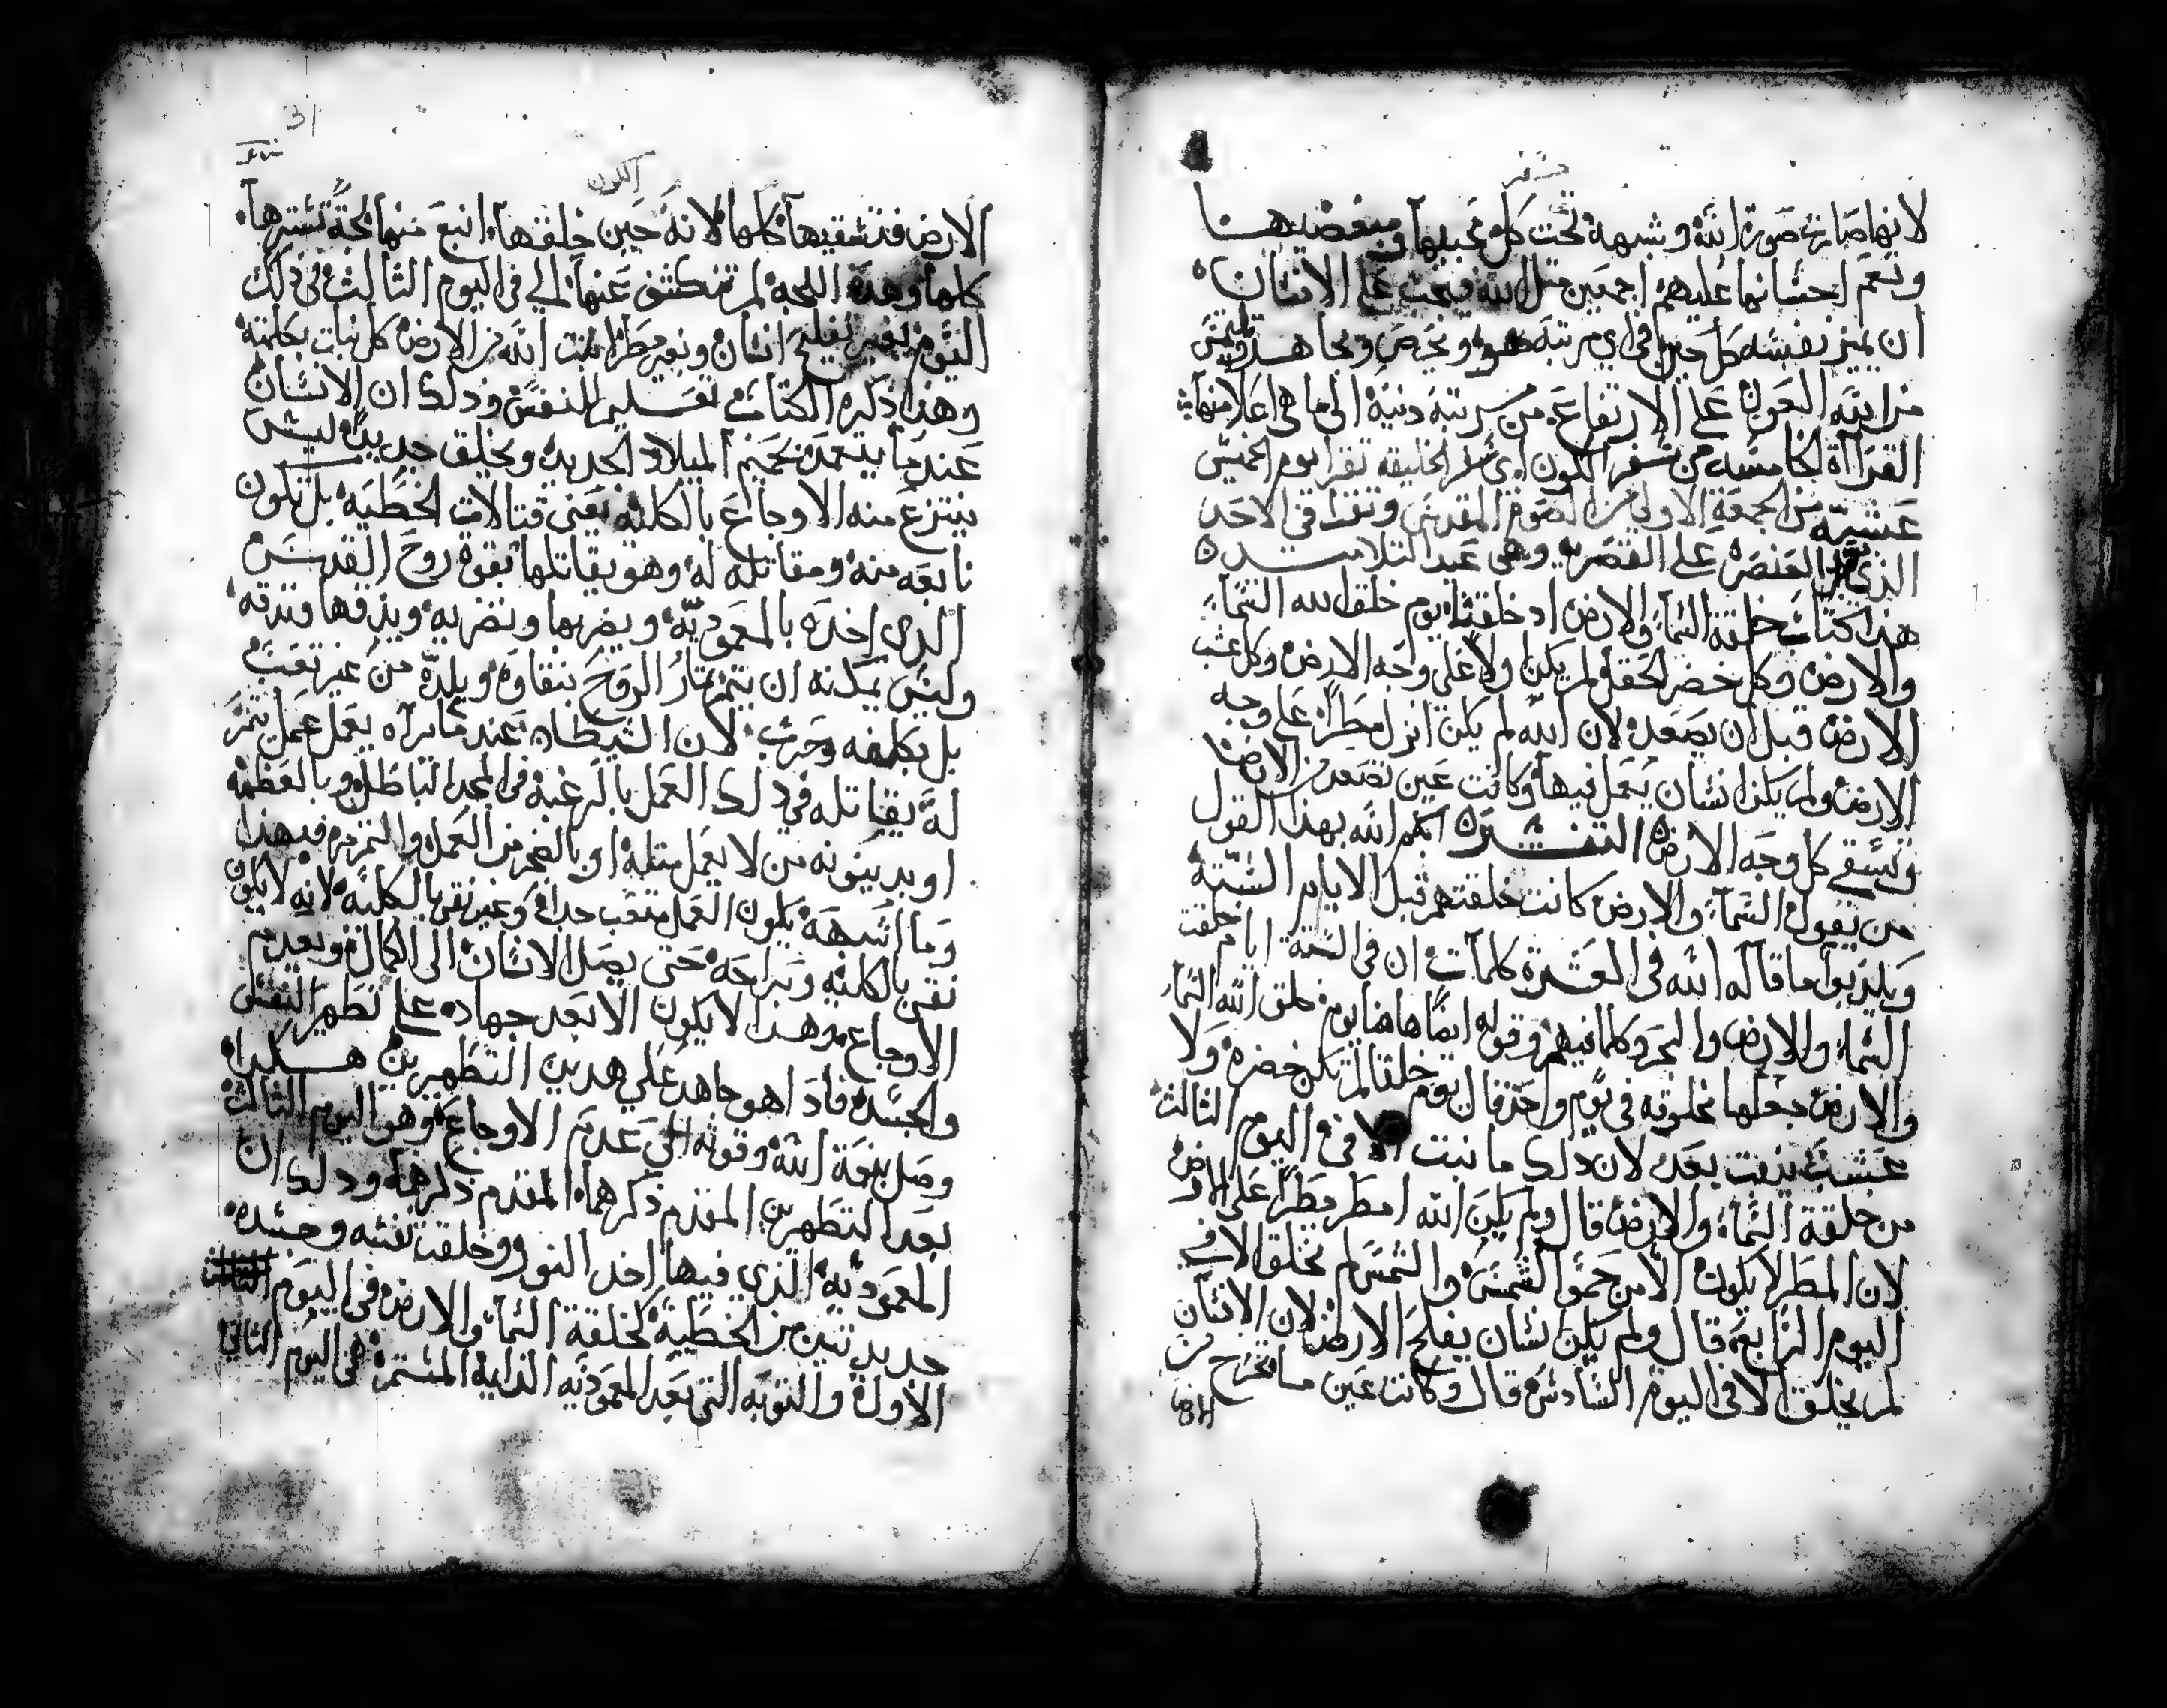 سفر
لانها صارت صورة الله وشبهه تحت كل محبيها ومبغضيها
وتعم احسانها عليهم اجمعين مثل الله فيجب على الانسان
ان يميز نفسه كل حين في اي مرتبه هو ويحرص ويجاهد ويلتمس
من الله العون على الارتفاع من مرتبة دنية الى ما هي اعلا منها
القراة الخامسه من سفر الكون اي سفر الخليقه تقرا يوم الخميس
عشية من الجمعة الاولي من الصوم المقدس وتقرا في الاحد
الذي العنصرة على القصريه وهي عيد التلاميد
هذا كتاب خلقة السماء والارض اد خلقتا يوم خلق الله السماء
والارض وكل خضر الحقل لم يكن ولا على وجه الارض وكل عشب
الارض قبل ان يصعد لان الله لم يكن انزل مطرا على وجه
الارض ولم يكن انسان يعمل فيها وكانت عين تصعد من الارض
وتسقي كل وجه الارض التفسير ابكم الله بهذا القول
من يقول السماء والارض كانت خلقتهم قبل الايام الستة
ويكدبوا ما قاله الله في العشرة كلمات ان في الستة ايام خلقت
السماء والارض والبحر وكلما فيهم وقوله ايضا هاهنا يوم خلق الله السماء
والارض جعلها مخلوقه في يوم واحد قال يوم خلقا لم تكن خضرة ولا
عشب نبت بعد لان دلك ما نبت الا في اليوم الثالث
من خلقة السماء والارض قال ولم يكن الله امطر مطرا على الارض
لان المطر لا يكون الا من حمو الشمس والشمس لم تخلق الا في
اليوم الرابع قال ولم يكن انسان يفلح الارض لان الانسان
لم يخلق الا في اليوم السادس قال وكانت عين ما تخرج من
الارض
31
الكون
الارض فتسقيها كلها لانه حين خلقها انبع منها لجة تسترها
كلها وهذه اللجه لم تنكشف عنها الي في اليوم الثالث في ذلك
اليوم بغير تفليح انسان وبغير مطر انبت الله من الارض كل نبات بكلمته
وهذا ذكره الكتاب تعليم للنفس ودلك ان الانسان
عند ما يتعمد بحميم الميلاد الجديد ويخلق جديدا ليس
ينتزع منه الاوجاع بالكلية يعني قتالات الخطيه بل تكون
نابعه منه ومقاتله له وهو يقاتلها بقوة روح القدس
الدي اخده بالمعموديه ويضربها وتضربه ويذقها وتدقه
وليس يمكنه ان يتم ثمار الروح بنقاوة ويلدة من غير تعب
بل بكلفه وحرب لان الشيطان عند ما يراه يعمل عمل يثمر
له يقاتله في دلك العمل بالرغبة في المجد الباطل وبالعظمه
او بدينونه من لا يعمل مثله او بالضجر من العمل والتزمر فبهذا
وما اشبهه يكون العمل متعب جدا وغير نقي بالكليه لانه لا يكون
نقي بالكلية وبراحه حتى يصل الانسان الى الكمال وبعدم
الاوجاع وهذا لا يكون الا بعد جهاده على تطهير النفس
والجسد فادا هو جاهد علي هدين التطهيرين هكدا
وصل بنعمة الله وقوته الي عدم الاوجاع وهو اليوم الثالث
بعد التطهرين المقدم ذكرهما المقدم ذكرها ودلك ان
المعموديه الذي فيها اخد النور وخلقت نفسه وجسده
جديدتين من الخطيه كخلقة السماء والارض في اليوم
الاول والتوبه التي بعد المعموديه الدايمة المستمرة هي اليوم الثاني